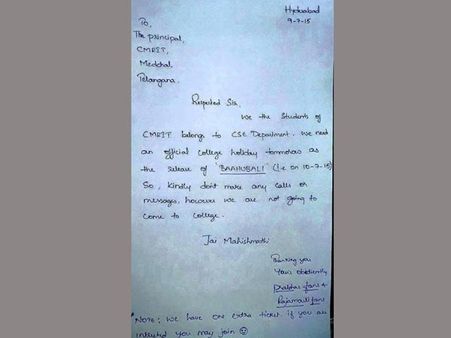 Hyderabad
9-7-15
To,
The principal,
CMRIT,
Medchal
Telangana.
Respected Sir,
We the Students of
CMRIT belongs to CSE Department. We need
an official College holiday tommorow as
the release of 'BAAHUBALI' (i.e on 10-7-15)
So, kindly don't make any calls or
messages, however we are not going to
come to college.
Jai Mahishmathi
Thanking you
Yours obediently
Prabhas fans &
Rajamouli fans
*Note: We have one extra ticket, if you are
intrested you may join ☺